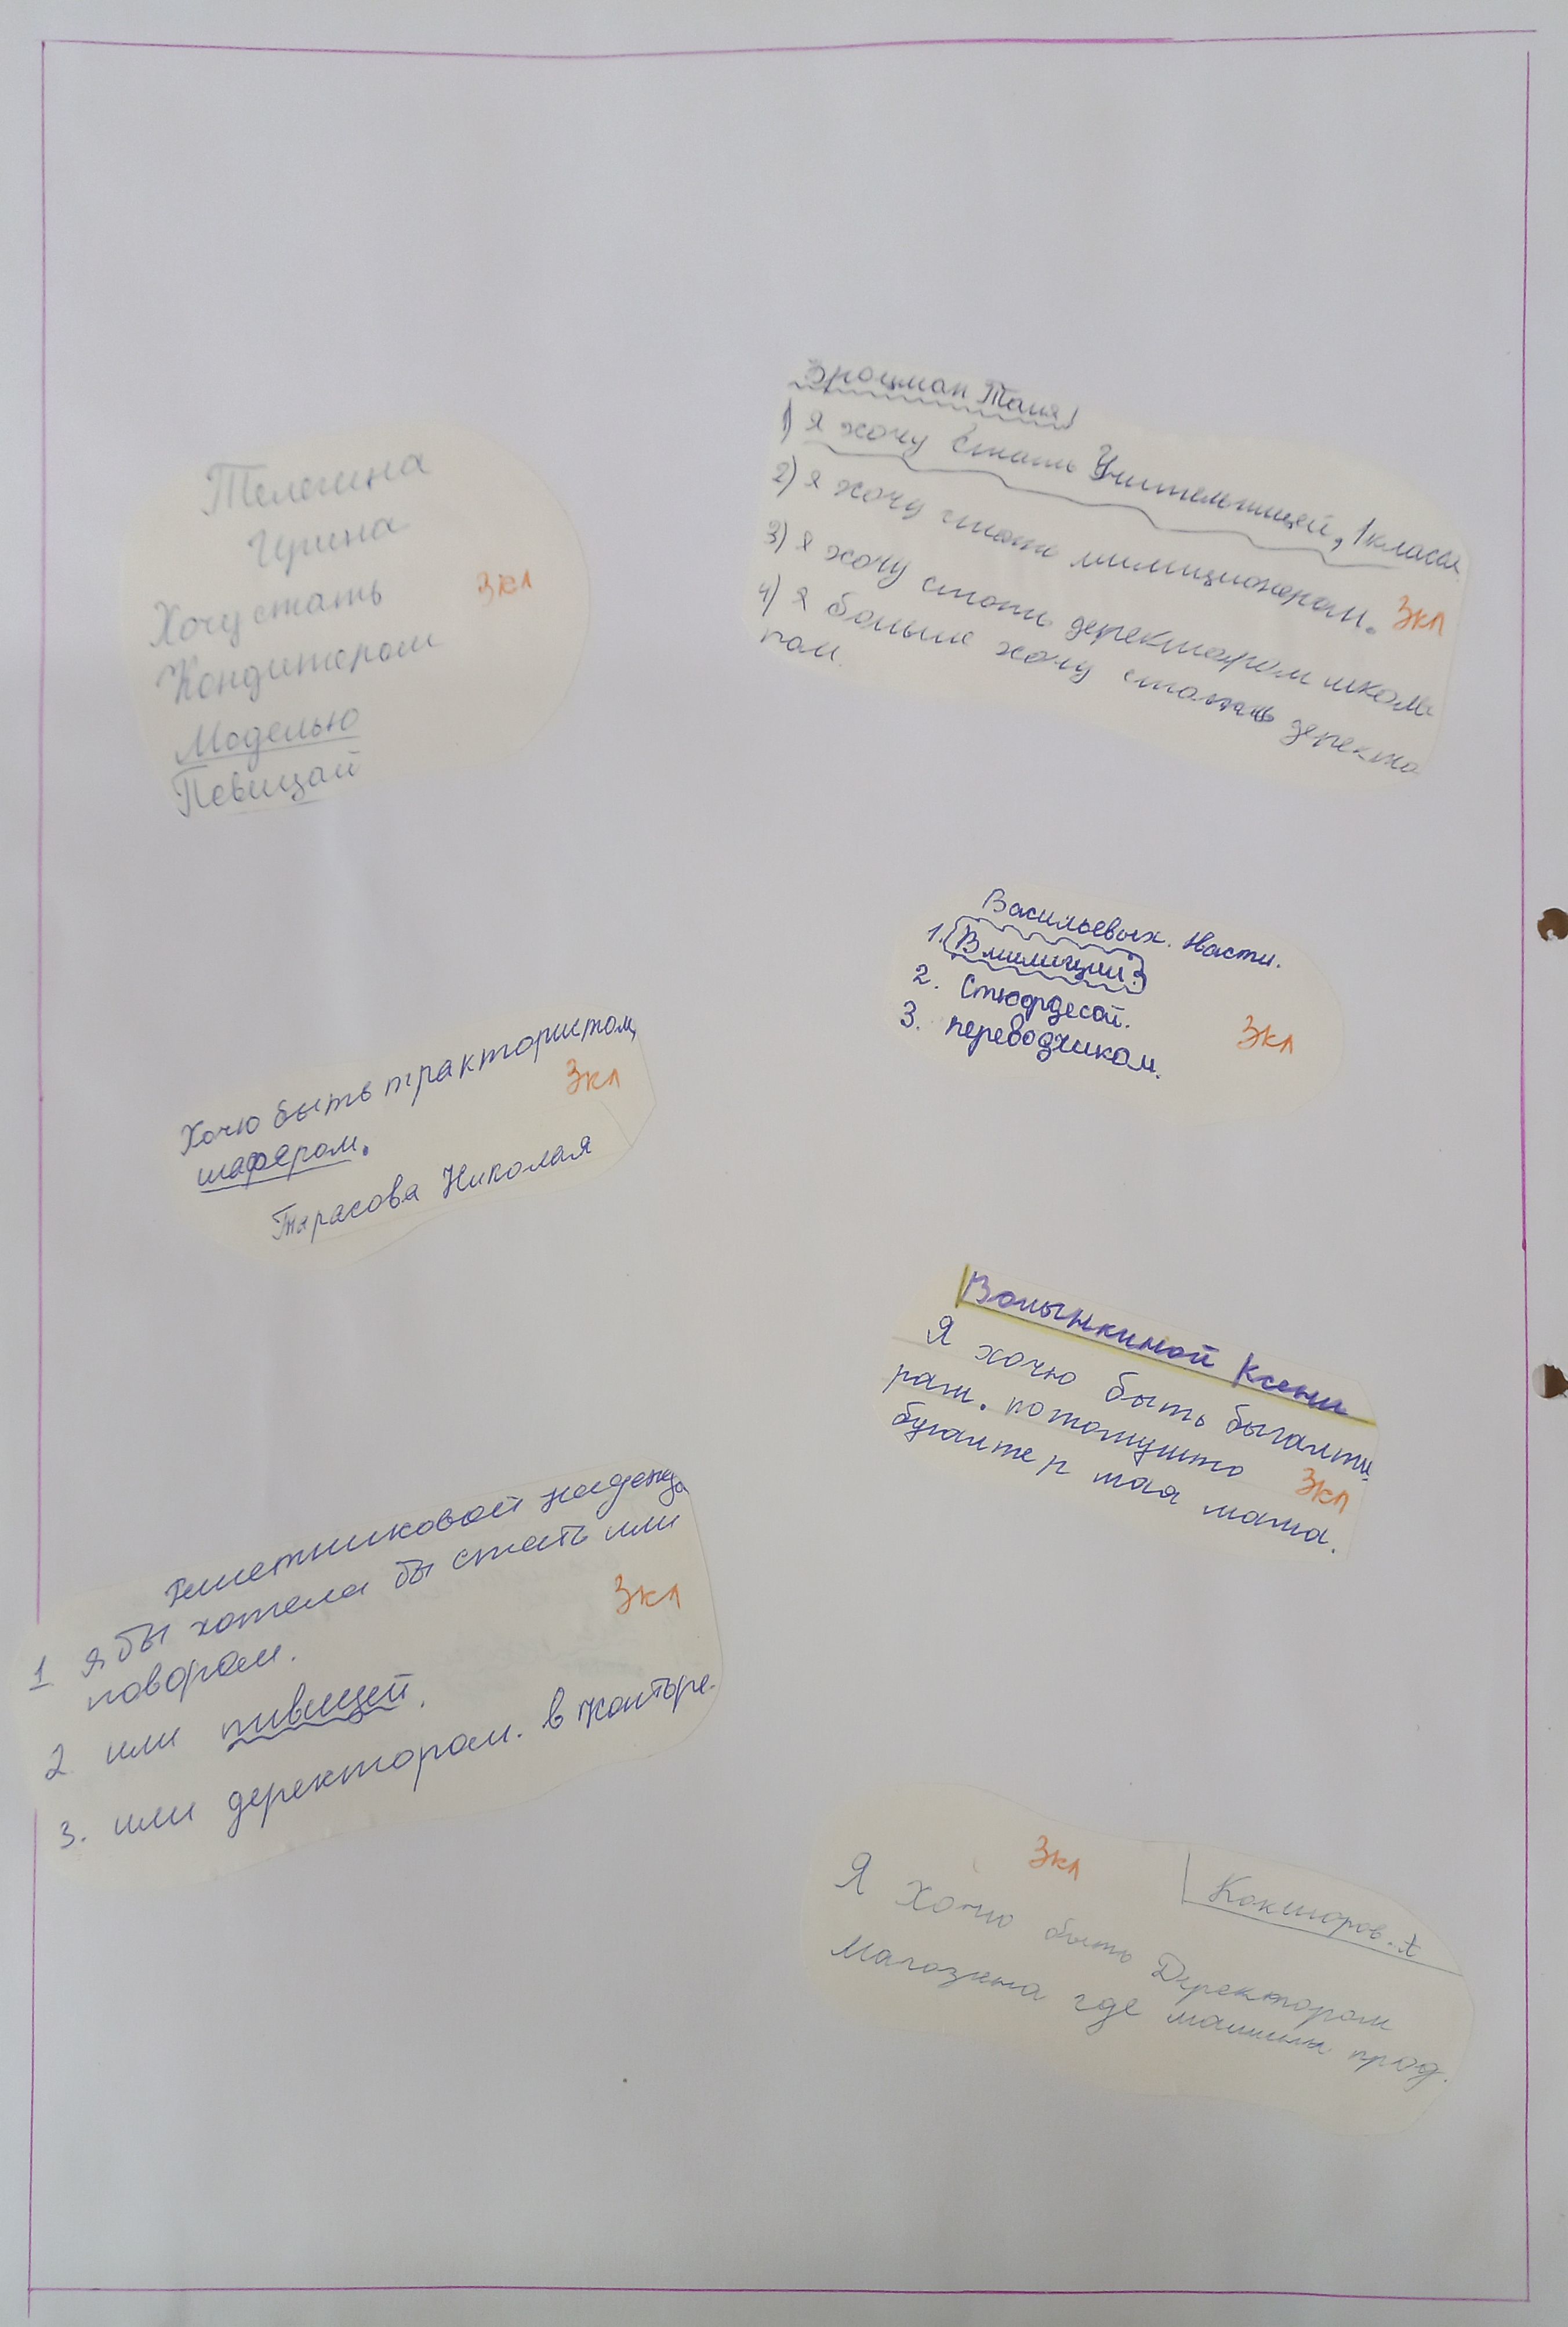 Телегина
Ирина
Хочу стать
3кл
Кондитером
Моделью
Певицай
Эроцман Таня
1) Я хочу стать Учительницей, 1 класса
2) я хочу стать милиционером.
3кл
3) я хочу стать деректаром школы
4) я больше хочу стать деректо
ром
Васильевых. Насти.
1. В милиции
2. Стюрдесой.
3. переводчиком.
3кл
Хочю быть трактористом,
3кл
шафером.
Тарасова Николая
Волынкиной Ксени
Я хочю быть быгалти
рам. потомушто
3кл
бугалтер мая мама.
Решетниковой надежда
1 я бы хотела бы стать или
поворам.
3кл
2 или пивицей.
3. или деректорам. в канторе.
3кл
Кокшаров. А
Я Хочю быть Деректором
Магозина где машины прод.